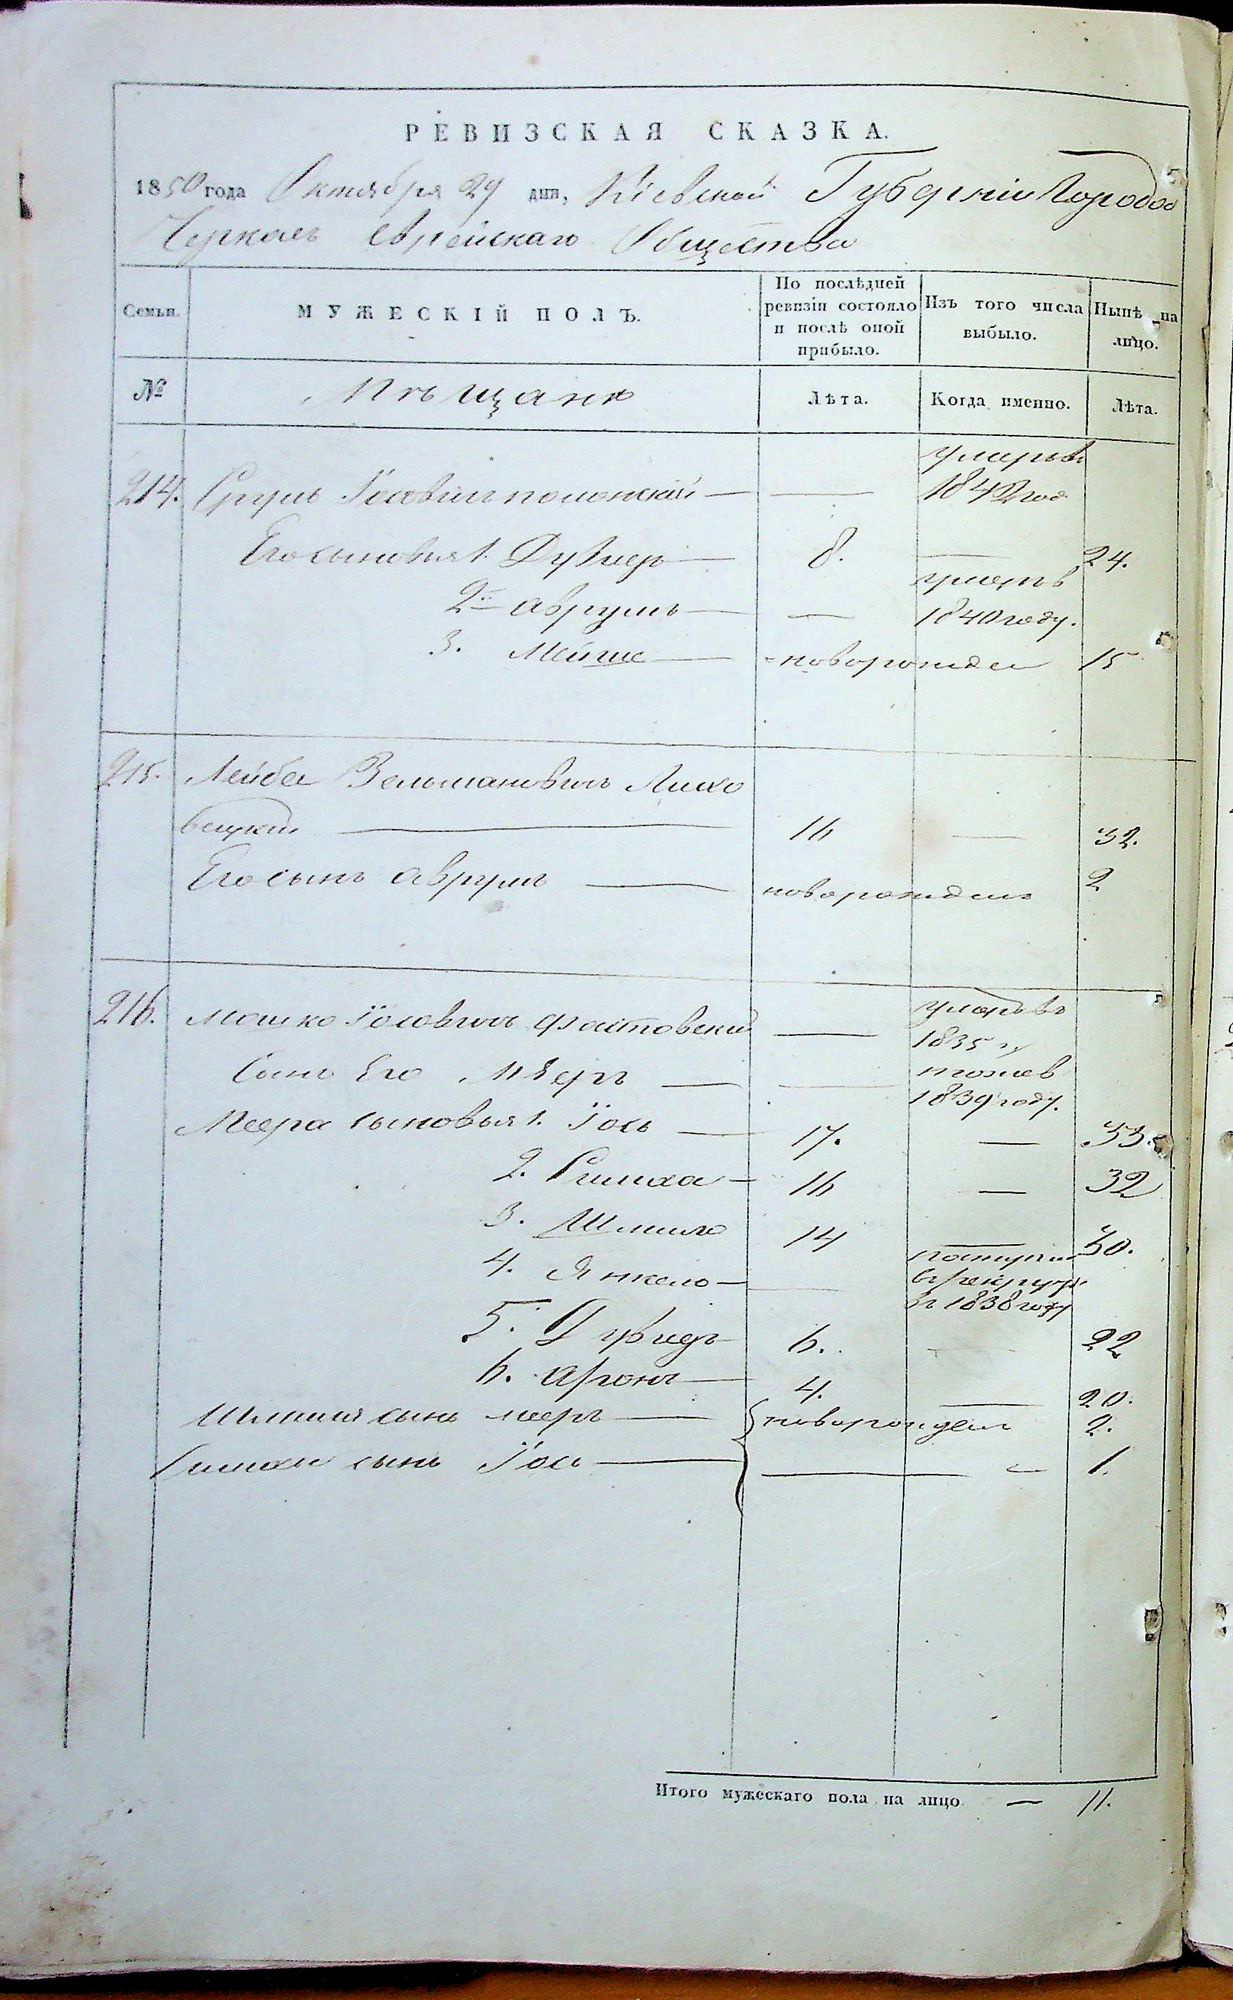 РЕВИЗСКАЯ СКАЗКА.
1850 года Октября 29 дня, Кіевской Губерніи Города
Черкасъ Еврейскаго Общества
Семьи.
МУЖЕСКІЙ ПОЛЪ.
По послѣдней ревизіи состояло и послѣ оной прибыло.
Изъ того числа выбыло.
Нынѣ на лицо.
№
Мѣщане
Лѣта.
Когда именно.
Лѣта.
умеръ въ
214. Сруль Іосевичъ полонскій — — 1842 год
Его сыновья 1. Дувидъ — 8. — 24.
умеръ в
2й аврумъ — — 1840 году.
3. Мейше — новорожден 15
215. Лейба Зельмановичъ Лихо
вецкій — 16 — 32.
Его сынъ аврумъ — новорожденъ 2
216. Мошко Іосевичъ фастовскій — умеръ въ
1835 г
Сынъ Его Меръ — — тоже в
1839 году.
Меера сыновья 1. Іось — 17. — 33.
2. Симха — 16 — 32
3. Шмилю 14 — 30.
4. Янкель — — поступил
в рекруты
в 1838 году
5. Дувидъ 6. — 22
6. аронъ — 4. — 20.
Шмиля сынъ меръ — новорожден 2.
Симхи сынъ Іось — — 1.
Итого мужескаго пола на лицо — 11.